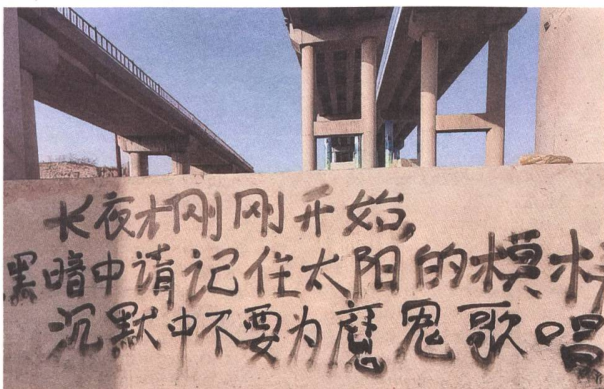 长夜才刚刚开始,
黑暗中请记住太阳的模样
沉默中不要为魔鬼歌唱